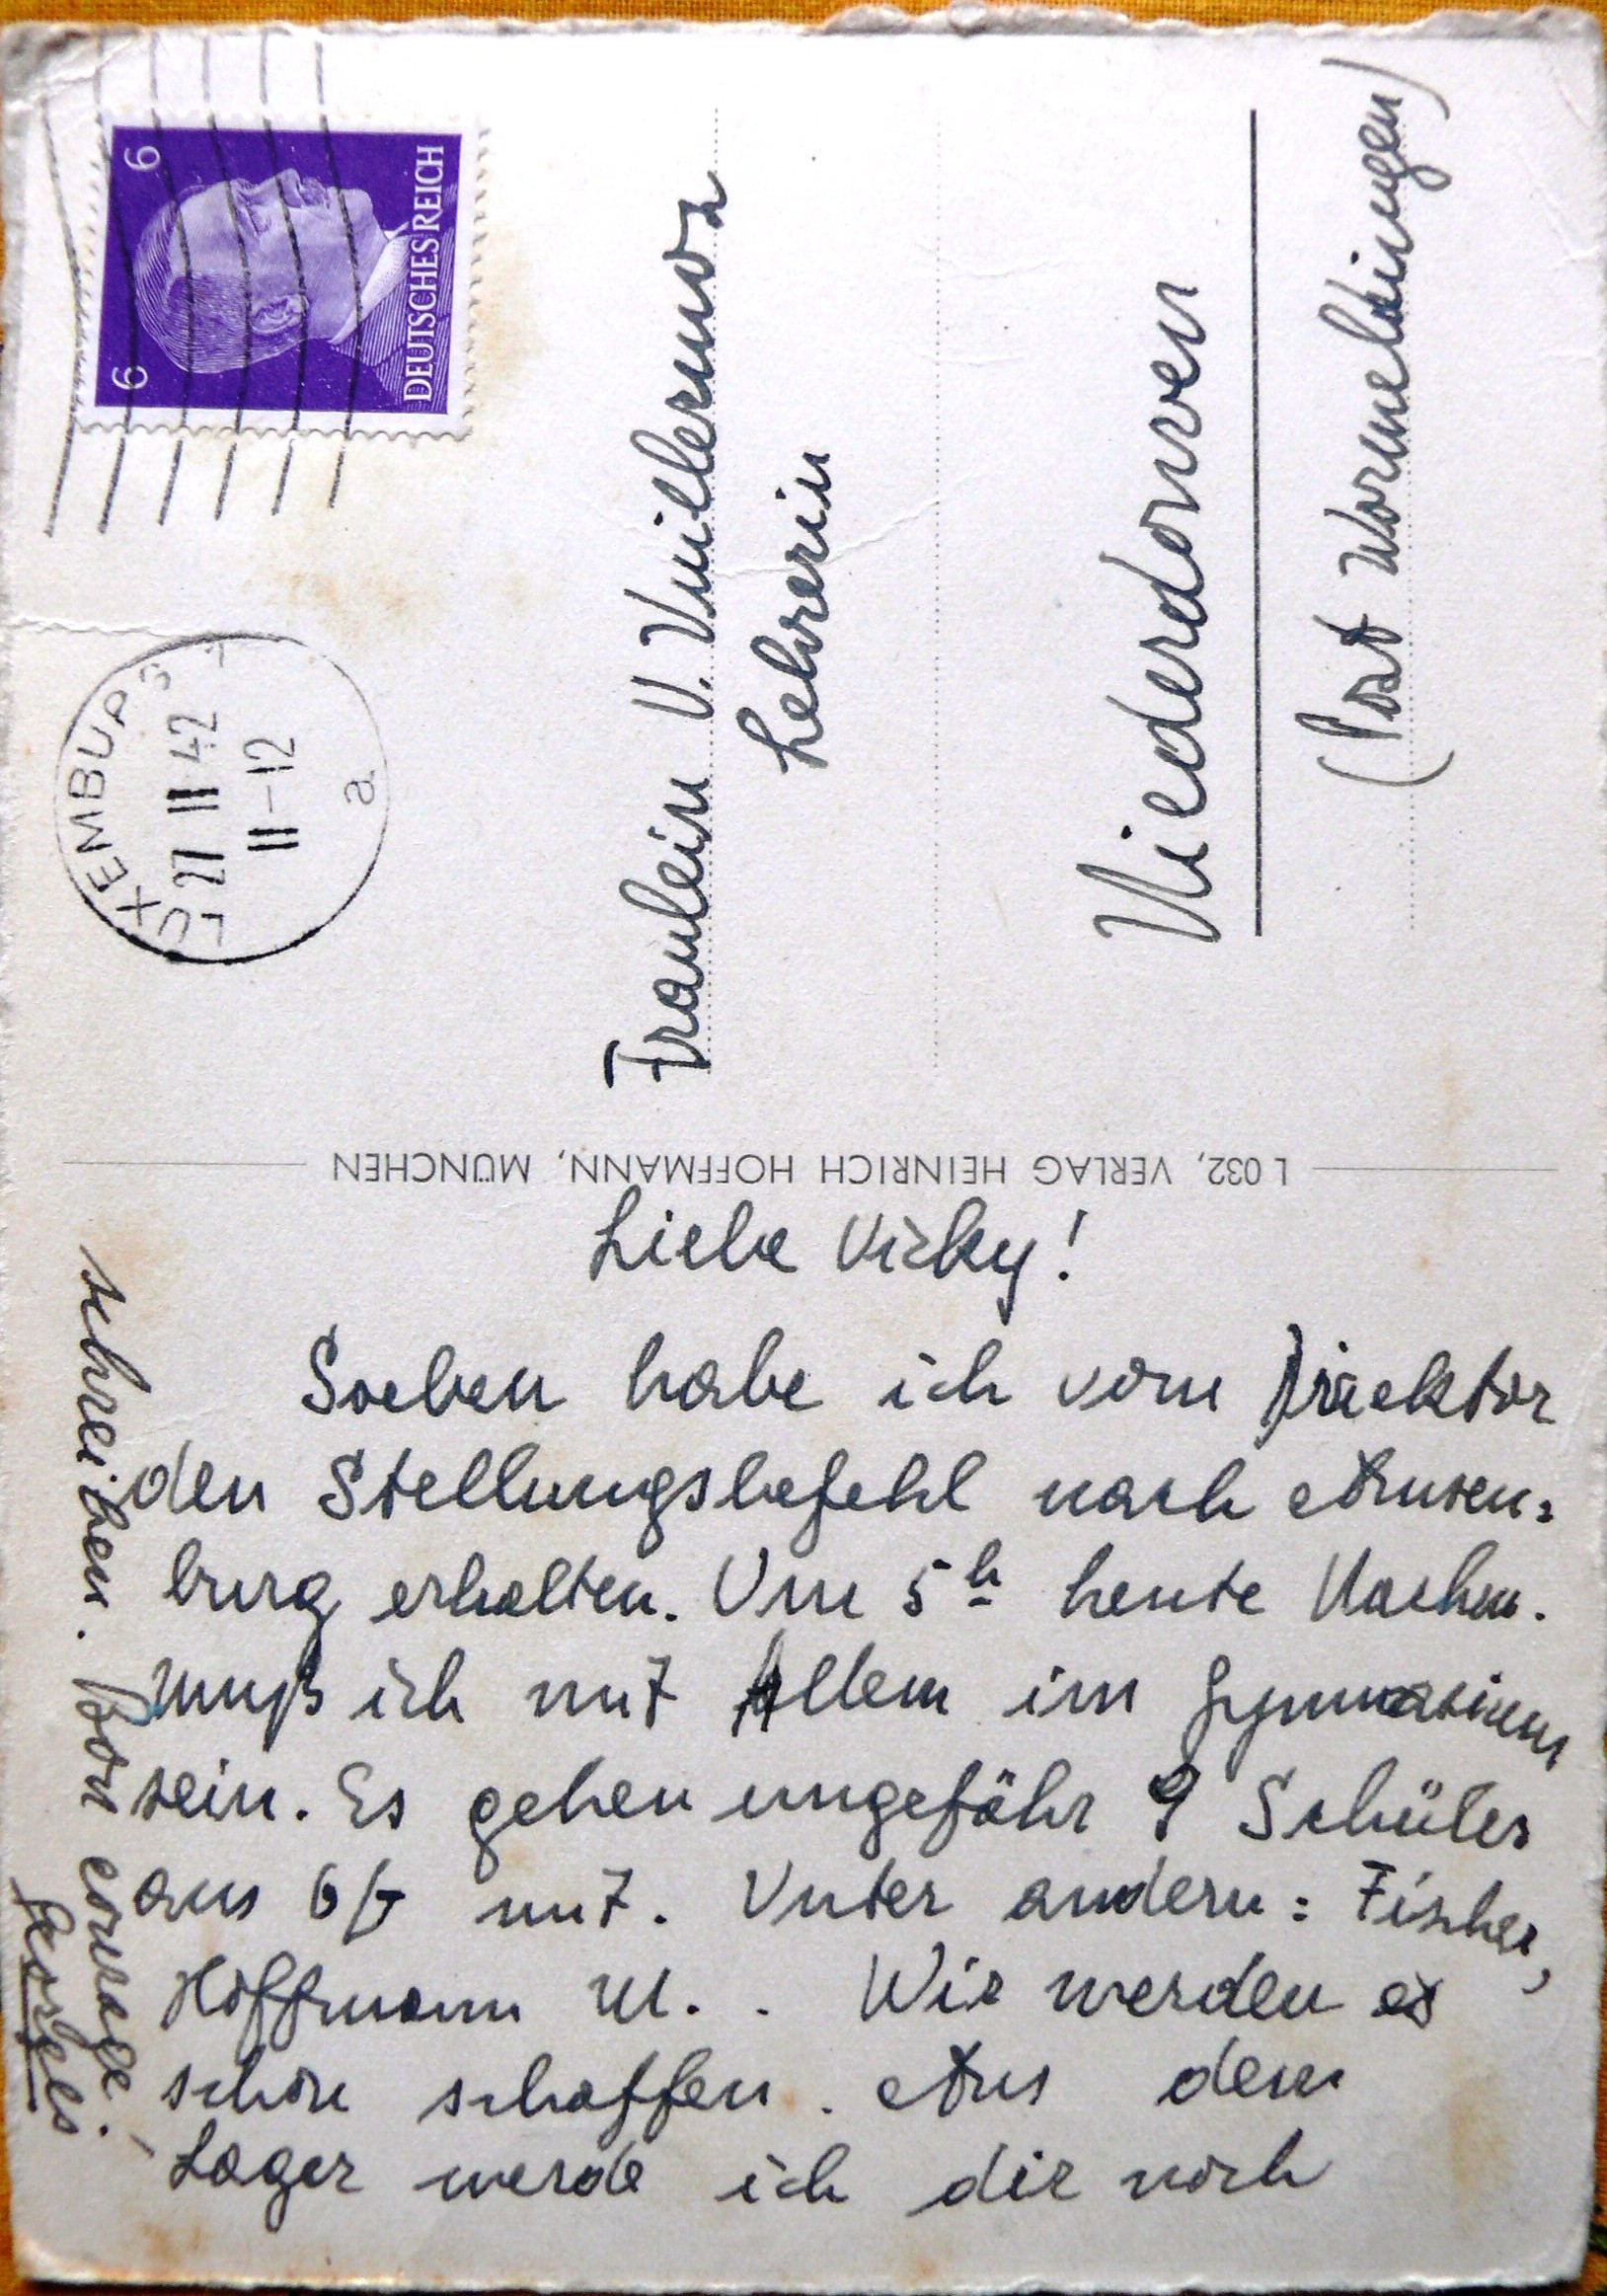 6 6
DEUTSCHES REICH
LUXEMBURG 1
27 11 42
11-12
a
Fraulein V. Vuillermoz
Lehrerin
Niederdonven
(Post Wormeldingen)
L 032, VERLAG HEINRICH HOFFMANN, MÜNCHEN
Liebe Vicky!
Soeben habe ich vom Direktor
den Stellungsbefehl nach
burg erhalten. Um 5h heute Nachm.
muß ich mit Allem im Gymnasium
sein. Es gehen ungefähr 9 Schüler
aus 6G mit. Unter andern: Fischer,
Hoffmann M.. Wir werden es
schon schaffen. Aus dem
Lager werde ich dir noch
schreiben. Bon courage. –
Georges.